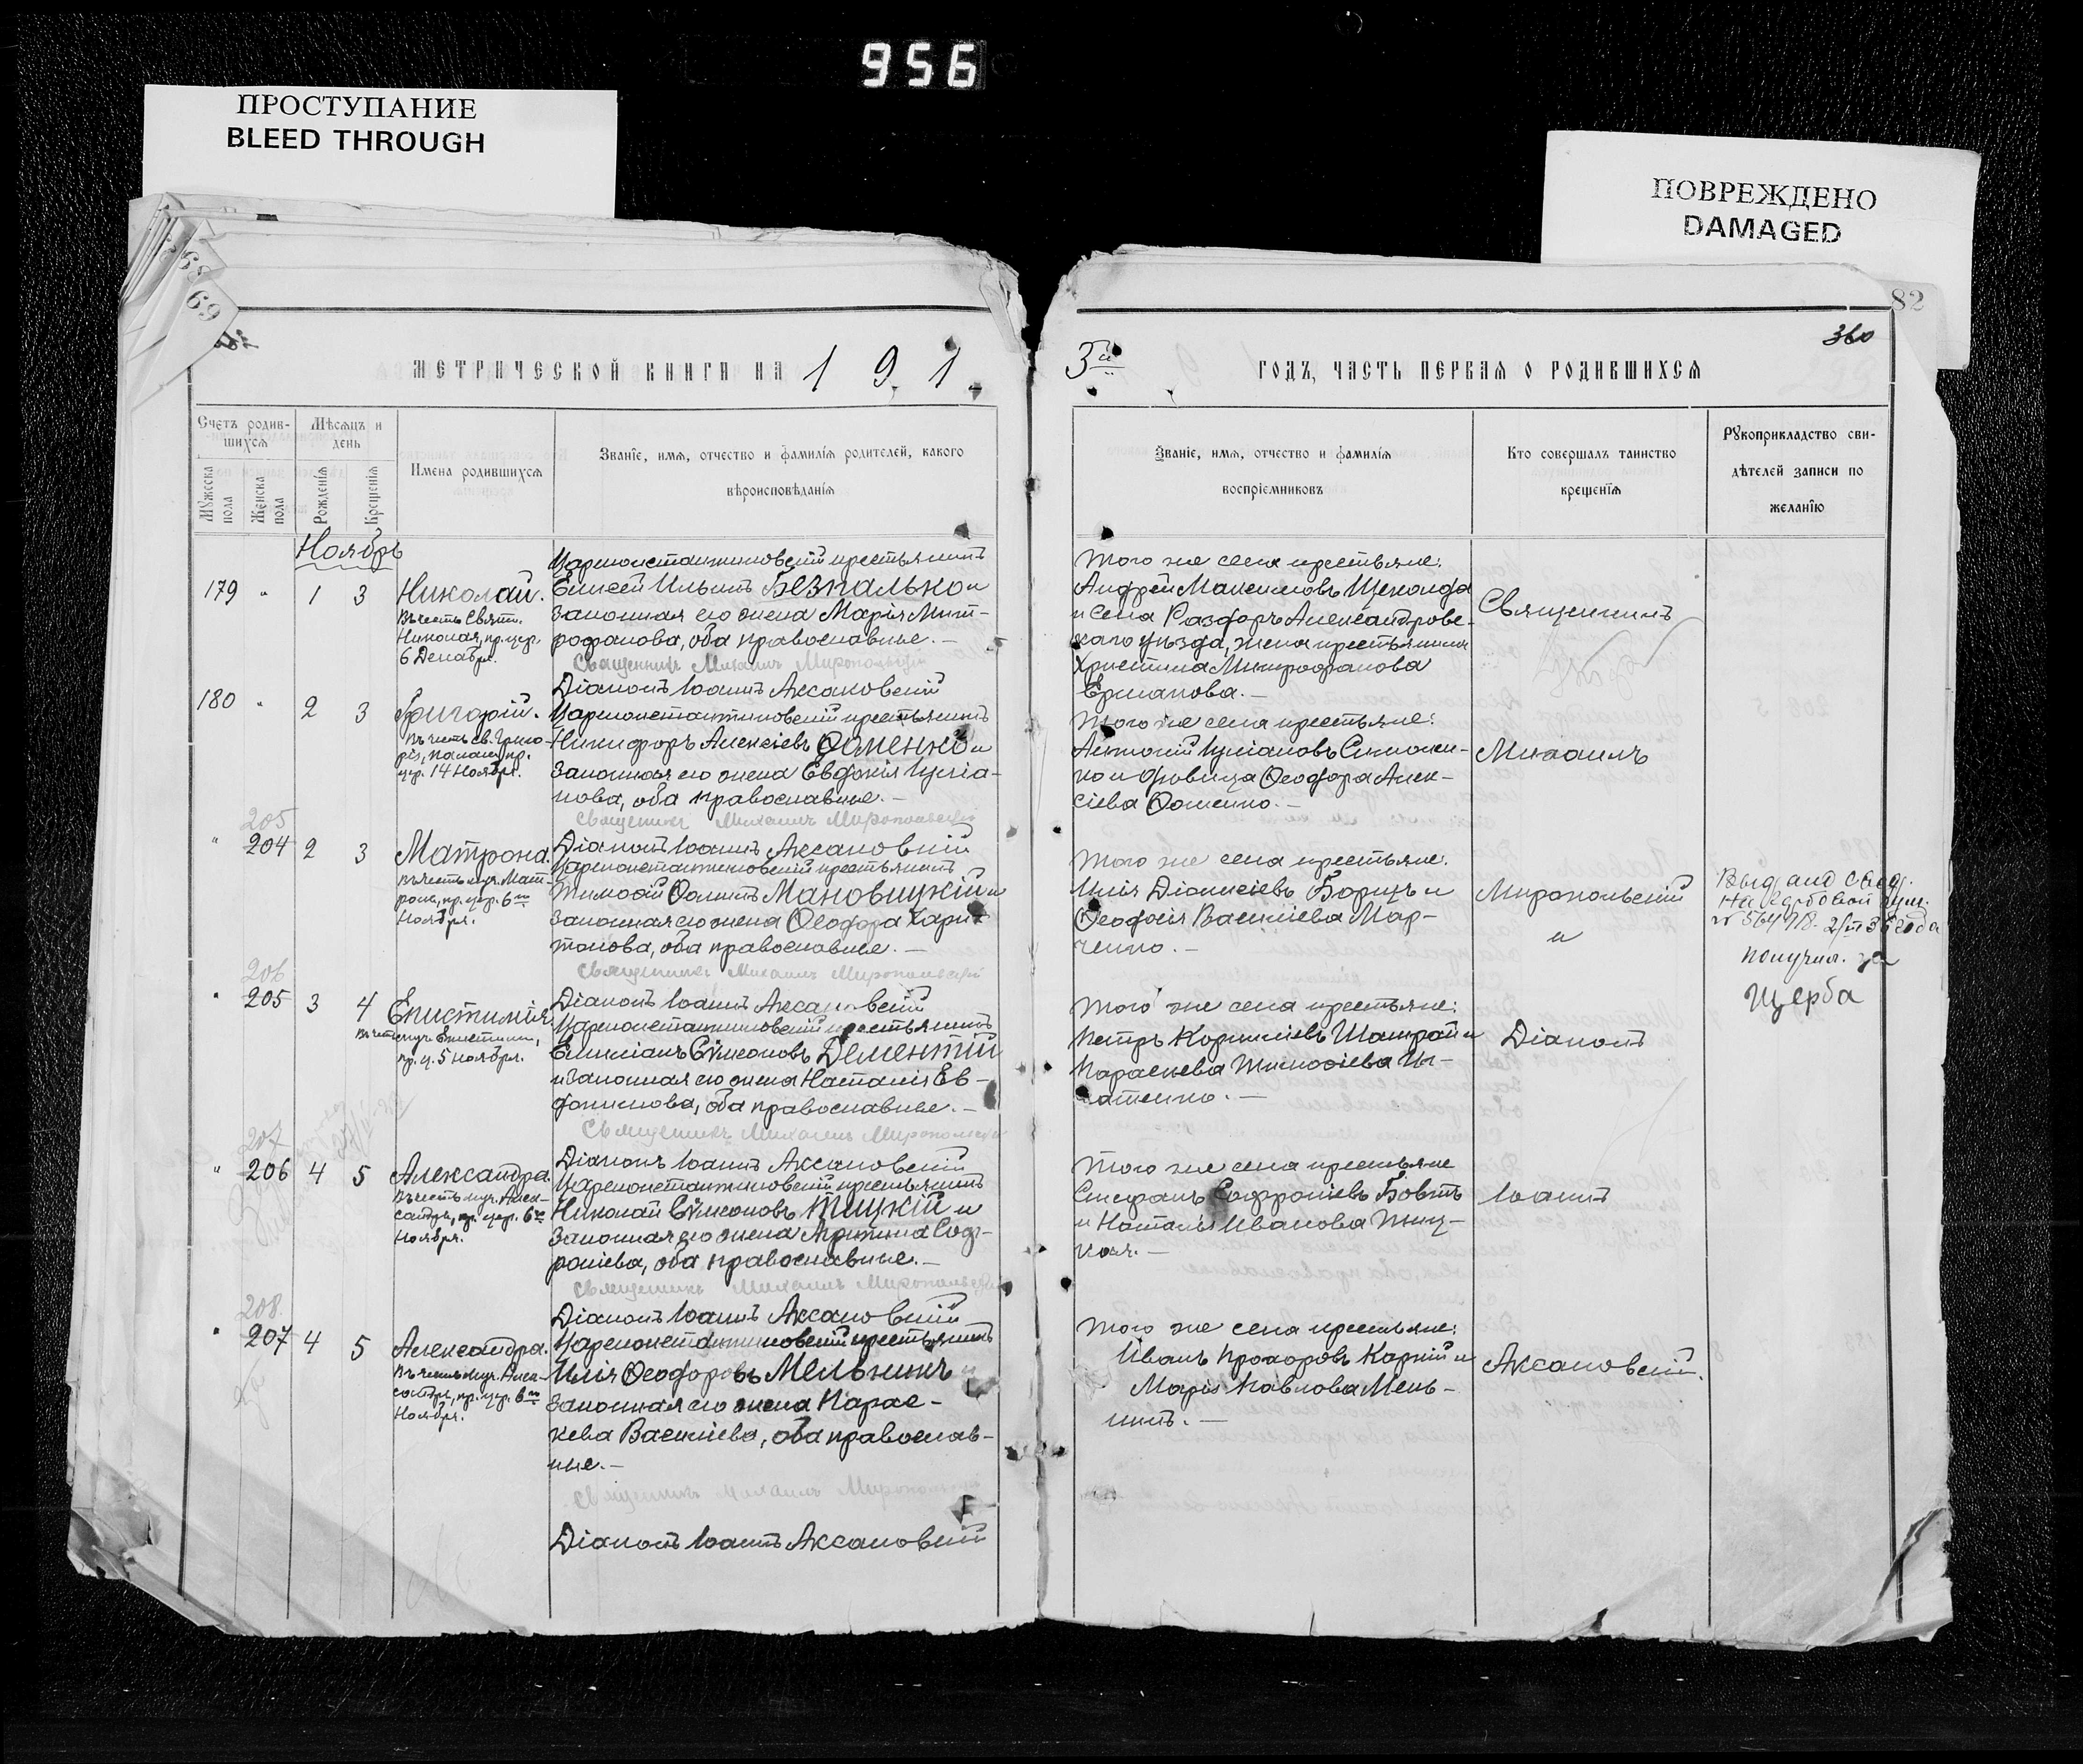 956
ПРОСТУПАНИЕ
BLEED THROUGH
ПОВРЕЖДЕНО
DAMAGED
68
69
82
360
МЕТРИЧЕСКОЙ КНИГИ НА 191
3й ГОДЪ, ЧАСТЬ ПЕРВАЯ О РОДИВШИХСЯ
Счетъ родив-
шихся
Мужеска пола
Женска пола
Мѣсяцъ и
день
Рожденія
Крещенія
Имена родившихся
Званіе, имя, отчество и фамилія родителей, какого
вѣроисповѣданія
Званіе, имя, отчество и фамилія
воспріемниковъ
Кто совершалъ таинство
крещенія
Рукоприкладство сви-
дѣтелей записи по
желанію
Ноябрь
179 " 1 3 Николай.
Въ честь Свят.
Николая, пр. цер.
6 Декабря.
Цареконстантиновскій крестьянинъ
Елисей Ильинъ Безпалько и
законная его жена Марія Мит-
рофанова, оба православные. —
Священникъ Михаилъ Миропольскій
Діаконъ Іоаннъ Аксаковскій
Того же села крестьяне:
Андрей Максимовъ Щеколда
и села Раздоръ Александровс-
каго уѣзда, жена крестьянина
Христина Митрофанова
Ермакова. —
Священникъ
180 " 2 3 Григорій.
Въ честь св. Григо-
рія, пр.
цер. 14 Ноября.
Цареконстантиновскій крестьянинъ
Никифоръ Алексіевъ Ѳоменко и
законная его жена Евфимія Иуліа-
нова, оба православные. —
Священникъ Михаилъ Миропольскій
Діаконъ Іоаннъ Аксаковскій
Того же села крестьяне:
Антоній Иуліановъ Симонен-
ко и дѣвица Ѳеодора Алек-
сіева Ѳоменко. —
Михаилъ
205
" 204 2 3 Матрона.
Въ честь муч. Мат-
роны, пр. цер. 6го
Ноября.
Цареконстантиновскій крестьянинъ
Тимоѳей Ѳоминъ Мановицкій и
законная его жена Ѳеодора Хари-
тонова, оба православные. —
Священникъ Михаилъ Миропольскій
Діаконъ Іоаннъ Аксаковскій
Того же села крестьяне:
Илія Діонисіевъ Борецъ и
Ѳеодосія Василіева Мар-
ченко. —
Миропольскій
и
получил. за
Щерба
206
" 205 3 4 Епистимія.
пр. ц. 5 Ноября.
Цареконстантиновскій крестьянинъ
Емиліанъ Сѵмеоновъ Дементій
и законная его жена Наталія Ев-
фимова, оба православные. —
Священникъ Михаилъ Миропольскій
Діаконъ Іоаннъ Аксаковскій
Того же села крестьяне:
Петръ Корниліевъ Шамрай и
Параскева Тимоѳіева Иг-
натенко. —
Діаконъ
207
" 206 4 5 Александра.
Въ честь муч. Алек-
сандры, пр. цер. 6го
Ноября.
Цареконстантиновскій крестьянинъ
Николай Сѵмеоновъ Тицкій и
законная его жена Софр-
оніева, оба православные. —
Священникъ Михаилъ Миропольскій
Діаконъ Іоаннъ Аксаковскій
Того же села крестьяне
Стефанъ Софроніевъ Бовтъ
и Наталія Иванова Тиц-
кая. —
Іоаннъ
208
" 207 4 5 Александра.
Въ честь муч. Алек-
сандры, пр. цер. 6го
Ноября.
Цареконстантиновскій крестьянинъ
Илія Ѳеодоровъ Мельникъ и
законная его жена Парас-
кева Василіева, оба православ-
ные. —
Священникъ Михаилъ Миропольскій
Діаконъ Іоаннъ Аксаковскій
Того же села крестьяне:
Иванъ Прохоровъ Карпій и
Марія Павлова Мель-
никъ. —
Аксаковскій.